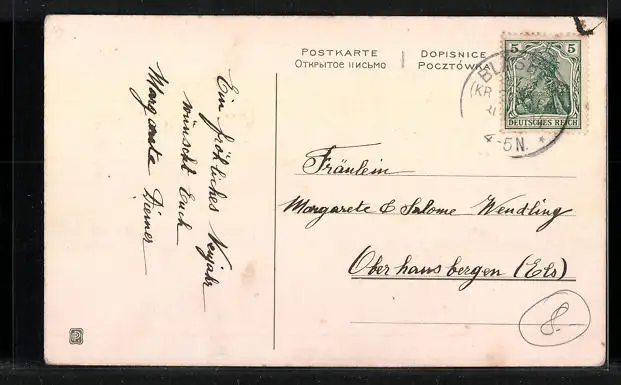 POSTKARTE
DOPISNICE
Открытое письмо
POCZTÓWKA
5 5
DEUTSCHES REICH
(KR.
4-5N. *
Ein fröhliches Neujahr
wünscht Euch
Margareta Diemer
Fräulein
Margarete & Salome Wendling
Oberhausbergen (Els)
8.